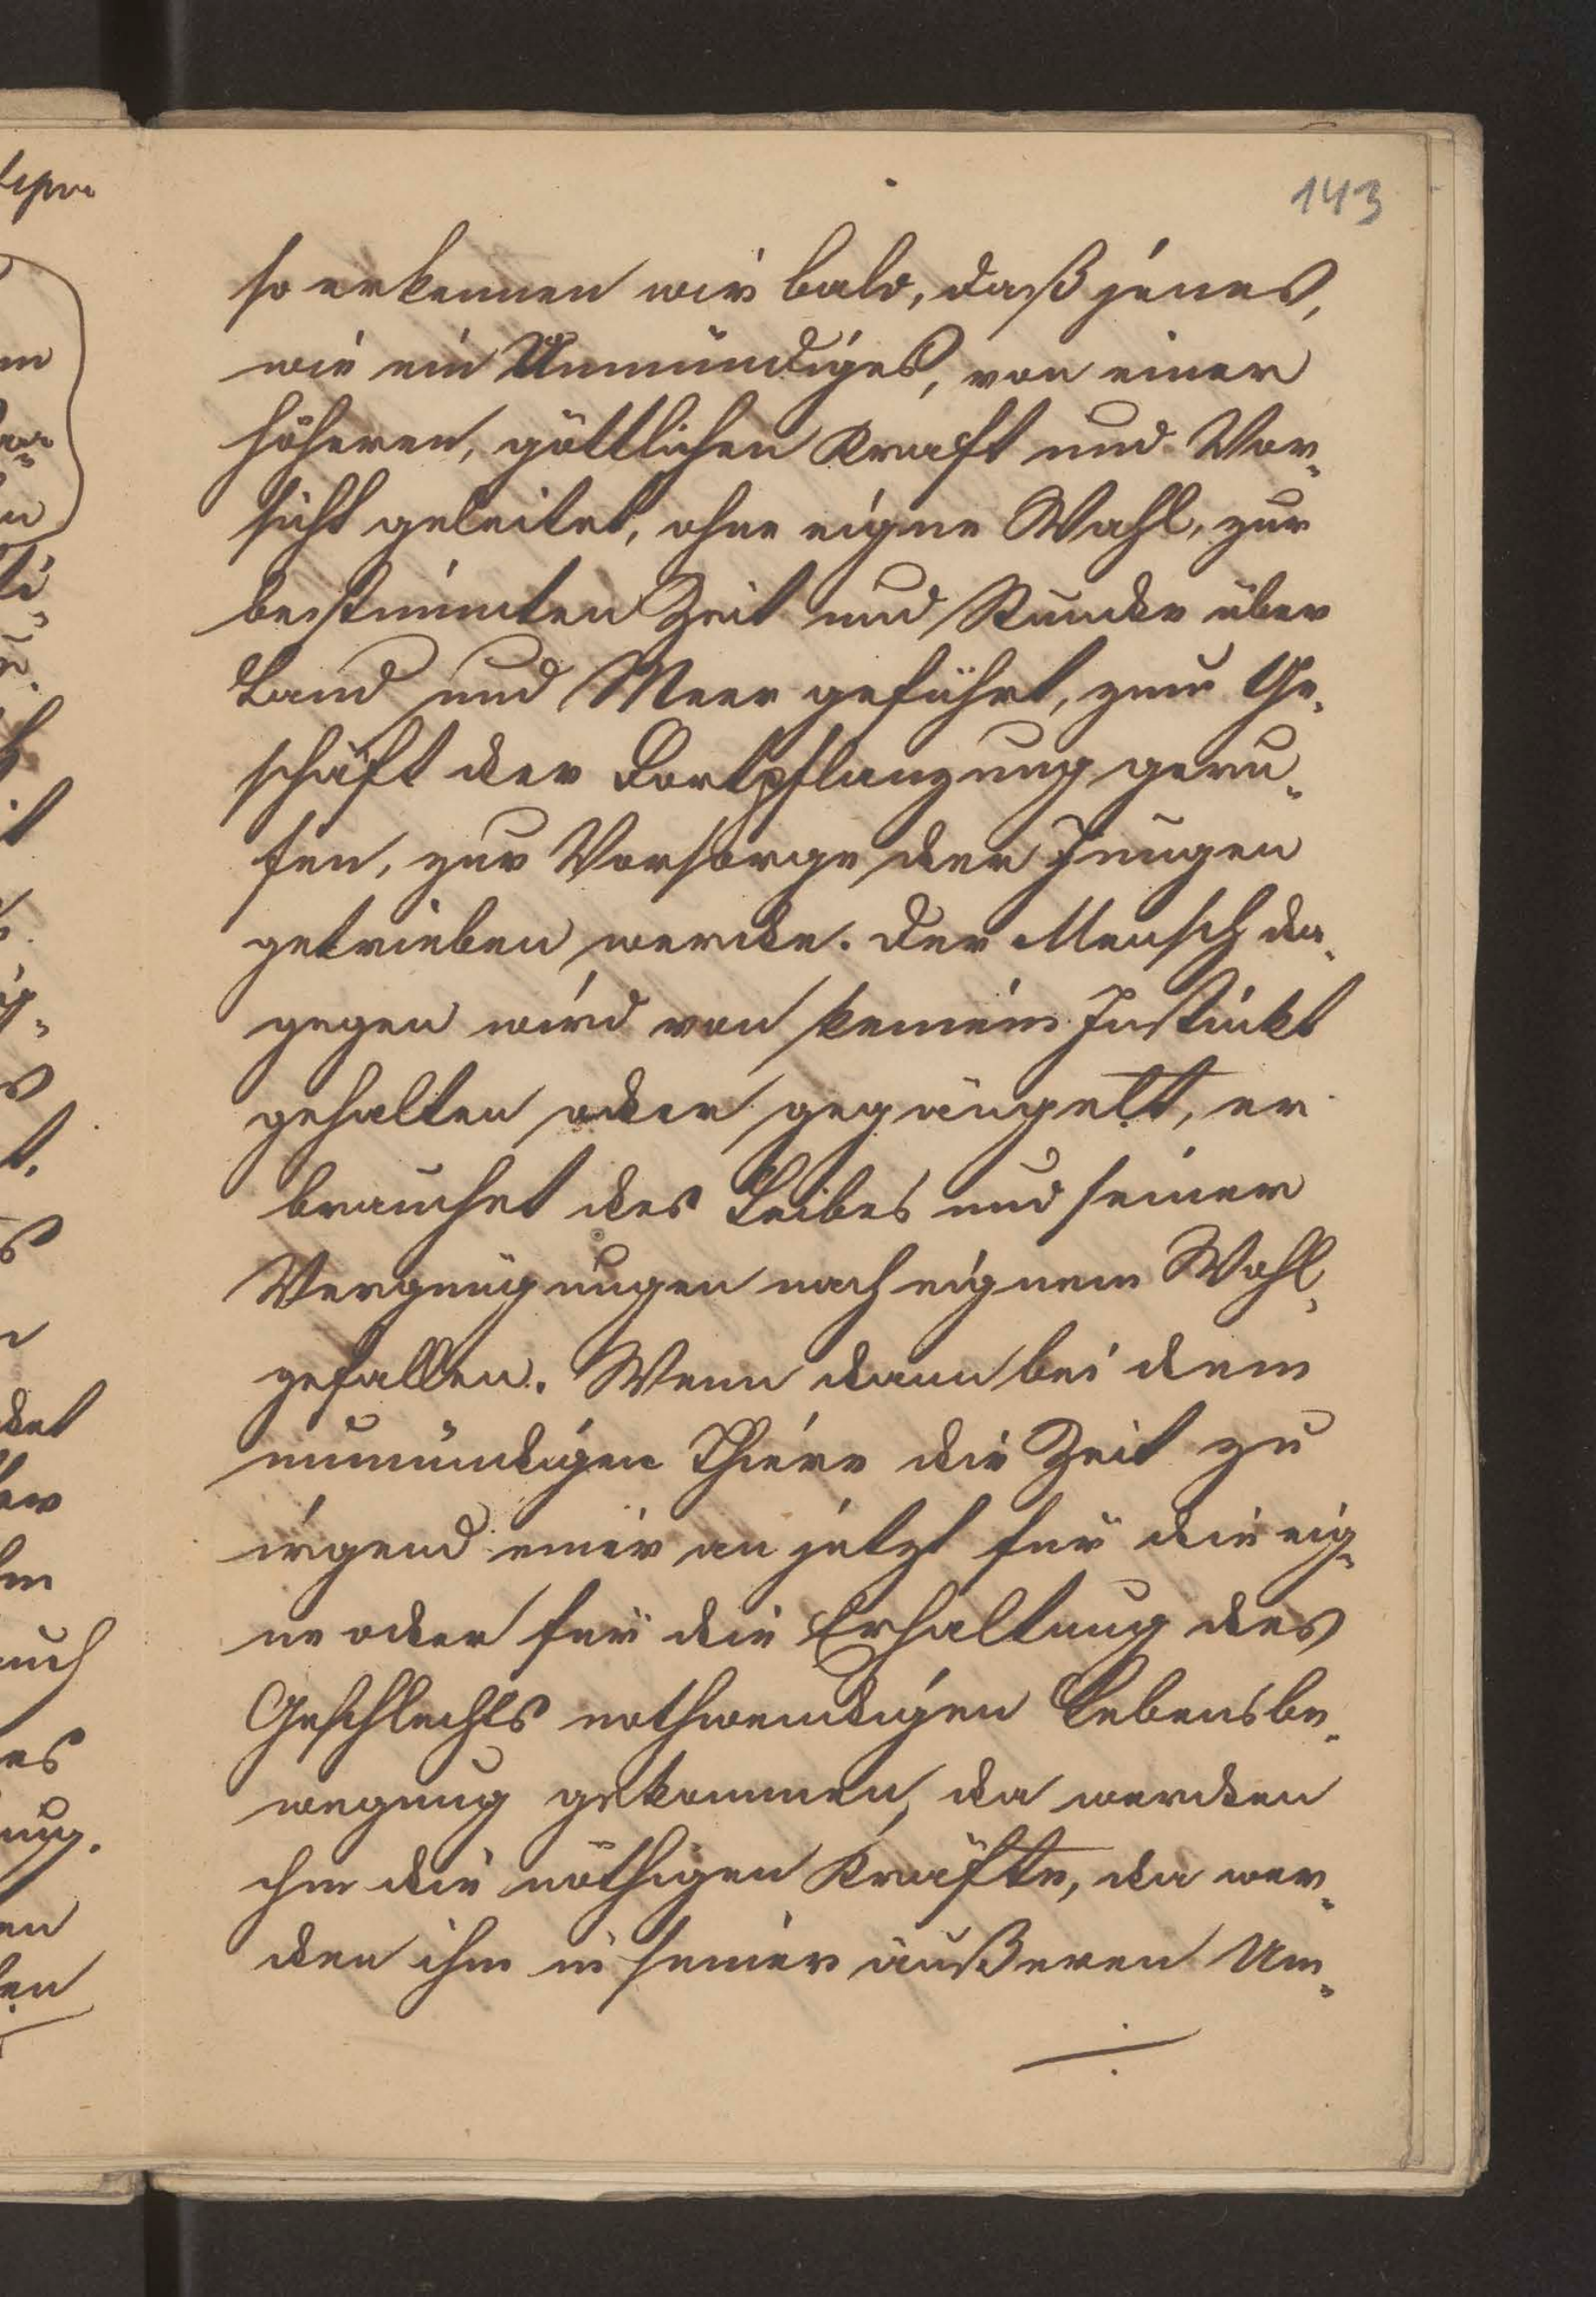 143
so erkennen wir bald, daß jenes,
wie ein Unmündiges, von einer
höheren, göttlichen Kraft und Vor-
sicht geleitet, ohne eigne Wahl, zur
bestimmten Zeit und Stunde über
Land und Meer geführt, zum Ge-
schäft der Fortpflanzung geru-
fen, zur Vorsorge der Jungen
getrieben werde. Der Mensch da-
gegen wird von keinem Instinkt
gehalten oder gegängelt, er
brauchet des Leibes und seiner
Vergnügungen nach eignem Wohl-
gefallen. Wenn dann bei dem
unmündigen Thiere die Zeit zu
irgend einer an jetzt für die eig-
ne oder für die Erhaltung des
Geschlechts nothwendigen Lebensbe-
wegung gekommen, da werden
ihm die nöthigen Kräfte, da wer-
den ihm in seiner äußeren Um-